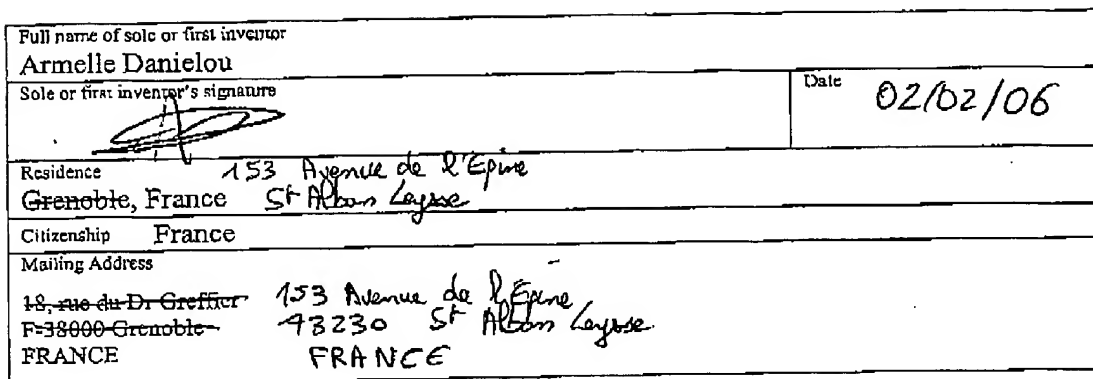 Full name of sole or first inventor
Armelle Danielou
Sole or first inventor's signature
Date 02/02/06
Residence 153 Avenue de l'Epine
Grenoble, France St Alban Leysse
Citizenship France
Mailing Address
18, rue du Dr Greffier 153 Avenue de l'Epine
F-38000 Grenoble 73230 St Alban Leysse
FRANCE FRANCE